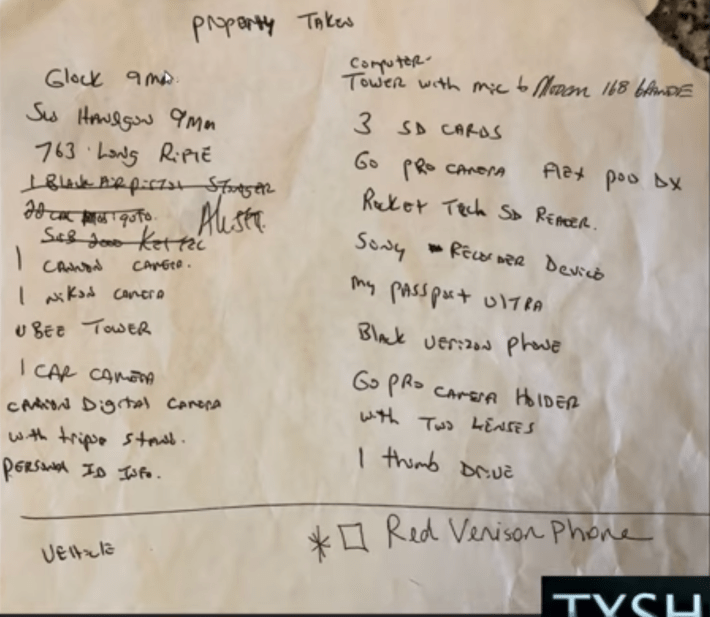 Property Taken
Glock 9mm
S&W Handgun 9mm
763 Long Rifle
1 Black Air Pistol Stinger
22 cal
Sub 2000 Kel Tec
1 Cannon camera.
1 Nikon camera
UBEE Tower
1 Car Camera
Cannon Digital Camera
with tripod stand.
Personal ID Info.
Computer
Tower with mic &
3 SD Cards
Go Pro Camera Flex Pod DX
Rocket Tech SD Reader.
Sony Recorder Device
My Passport Ultra
Black Verizon Phone
Go Pro Camera Holder
with Two Lenses
1 thumb Drive
Vehicle
* □ Red Verison Phone
TYSH